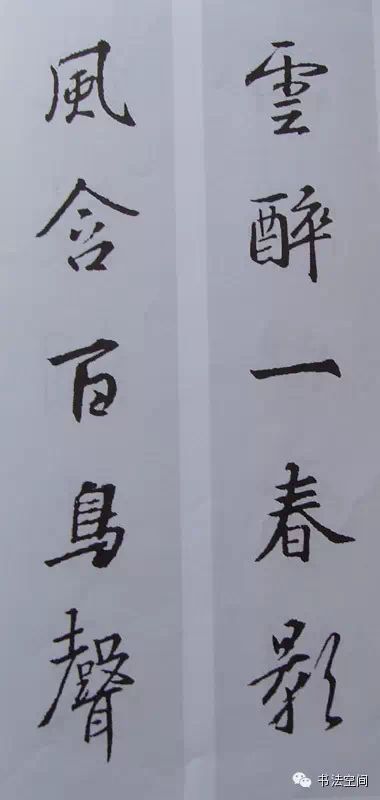 雲醉一春影
風含百鳥聲
书法空间